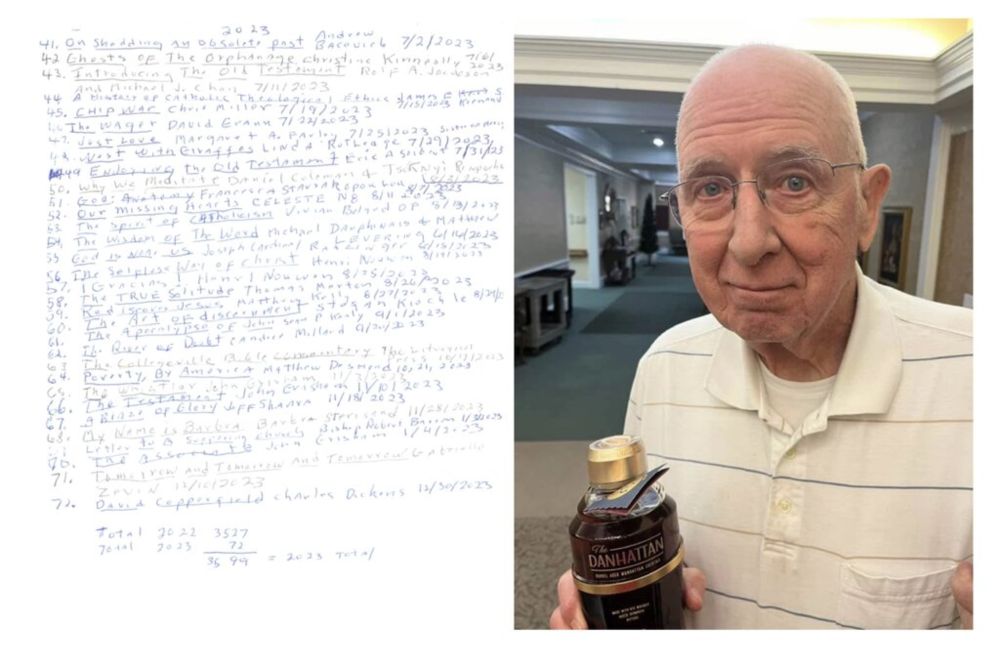 2023
41. On Shedding an Obsolete past Andrew
Bacevich 7/2/2023
42 Ghosts of The Orphanage christine Kenneally 7/6/
2023
43. Introducing The Old Testament Rolf A. Jacobson
and Michael J. Chan 7/11/2023
44 A History of Catholic Theological Ethics James F.
45. CHIP WAR Chris Miller 7/19/2023 7/15/2023 Keenan
46 The WAGER DAVID Grann 7/22/2023
47. Just Love Margaret A. Farley 7/25/2023
48. West with Giraffes LINDA Rutledge 7/29/2023
49 the Old Testament Eric A 7/31/23
50. Why We Meditate Daniel Goleman & Tsoknyi Rinpoche
51. God: Anatomy Francesca Stavrakopoulou 8/7/2023
52. Our missing Hearts CELESTE NG 8/11/2023
53. The Spirit of Catholicism Vivian Boland OP 8/13/2023
54. The Wisdom of The Word Michael Dauphinais & MATTHEW
LEVERING 2023
55 God is Near us Joseph Cardinal Ratzinger 2023
56. The Selfless Way of Christ Henri Nouwen 8/19/2023
57. Gracias! Henri Nouwen 8/25/2023
58. The TRUE Solitude Thomas Merton 8/26/2023
59. Rediscover Jesus Matthew 8/27/2023
60. The Art of discernment Stefan Kiechle 8/29/23
61. The Apocalypse of John Sean P Kealy 9/1/2023
62. The River of Doubt Candice Millard 2023
63 The Collegeville Bible Commentary The
64. Poverty, By America Matthew Desmond 10,21,2023
65. The John Grisham 2023
66. The Testament John Grisham 11/10/2023
67. A Blaze of Glory Jeff Shaara 11/18/2023
68. My Name is Barbra Barbra Streisand 11/28/2023
Letter To A Suffering Church Bishop Robert Barron
70. The Associate John Grisham 2023
71. Tomorrow and Tomorrow and Tomorrow Gabrielle
Zevin 12/10/2023
72. David Copperfield charles Dickens 12/30/2023
Total 2022 3527
Total 2023 72
35 99 = 2023 Total
The
DANHATTAN
BARREL AGED MANHATTAN COCKTAIL
MADE WITH RYE WHISKEY
BITTERS